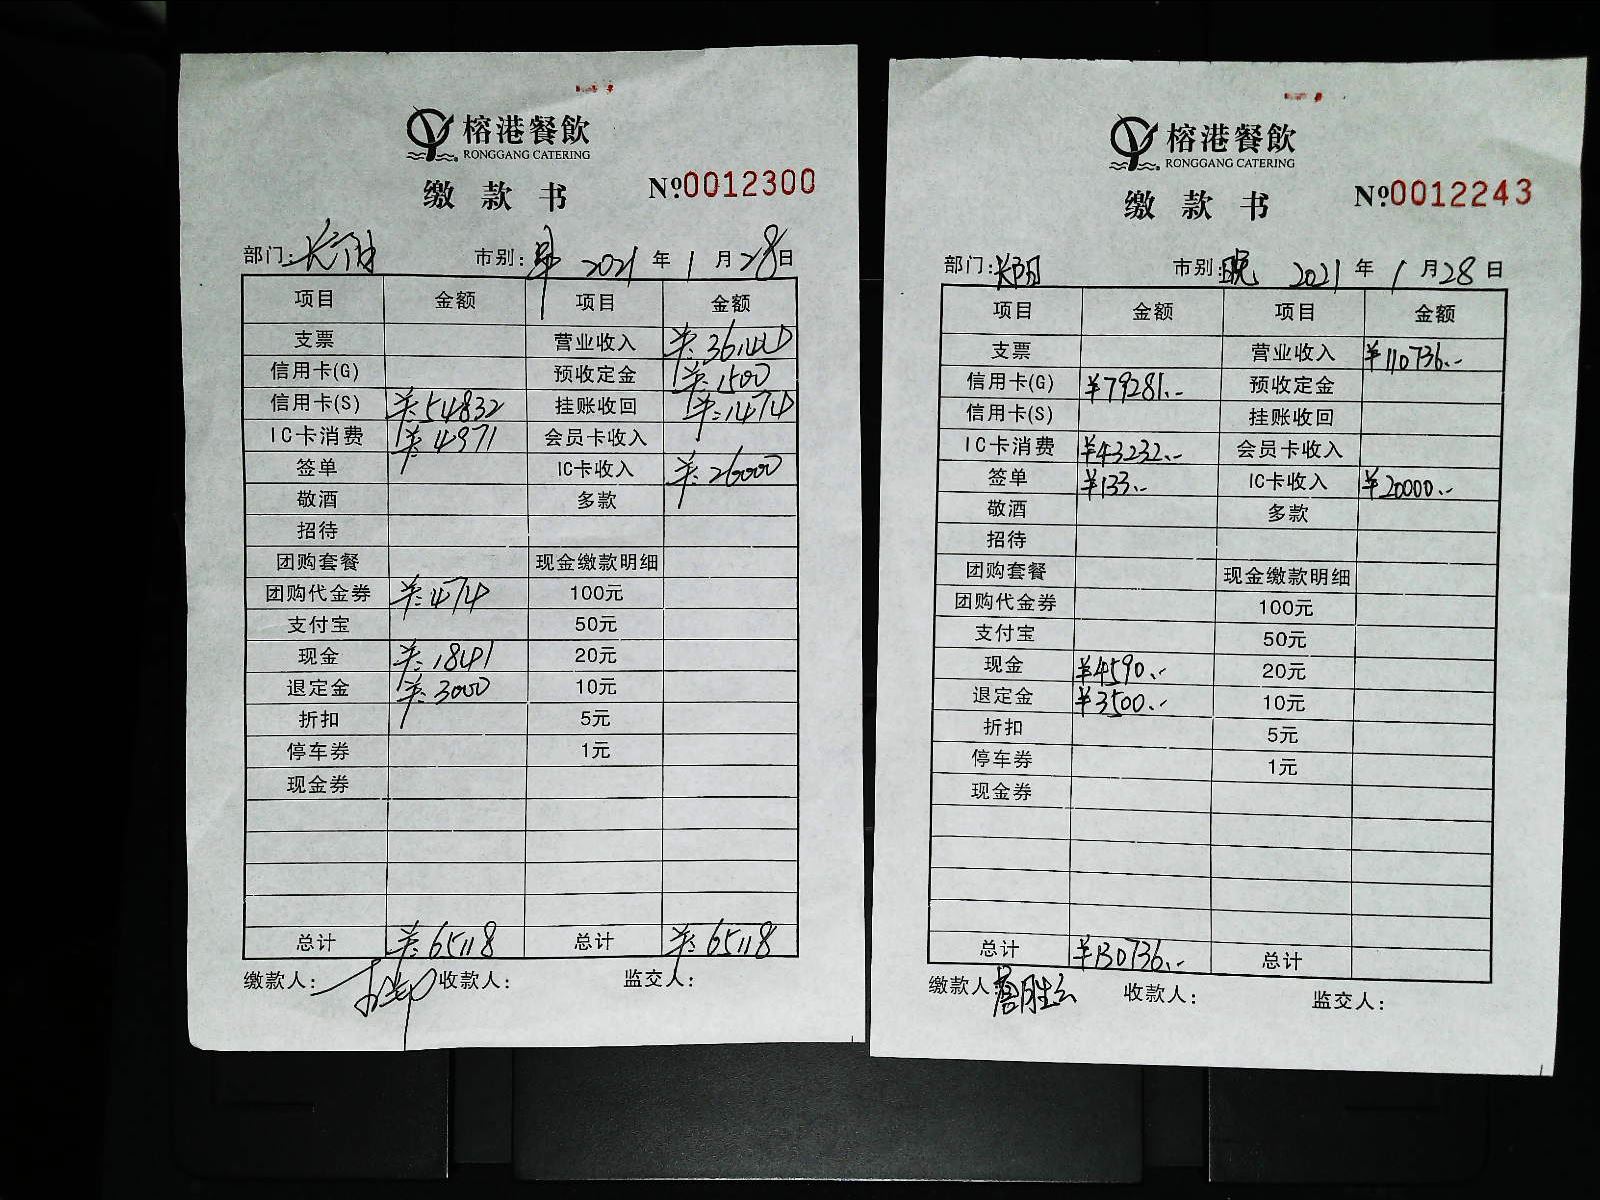 榕港餐飲
RONGGANG CATERING
缴款书
№0012300
部门: 市别:早 2021年1月28日
项目 金额 项目 金额
支票 营业收入 ¥:36144
信用卡(G) 预收定金 ¥:1500
信用卡(S) ¥:54832 挂账收回 ¥:1474
IC卡消费 ¥:4971 会员卡收入
签单 IC卡收入 ¥:26000
敬酒 多款
招待
团购套餐 现金缴款明细
团购代金券 ¥:474 100元
支付宝 50元
现金 ¥:1841 20元
退定金 ¥:3000 10元
折扣 5元
停车券 1元
现金券
总计 ¥:65118 总计 ¥:65118
缴款人: 收款人: 监交人:
榕港餐飲
RONGGANG CATERING
缴款书
№0012243
部门: 市别:晚 2021年1月28日
项目 金额 项目 金额
支票 营业收入 ¥110736.-
信用卡(G) ¥79281.- 预收定金
信用卡(S) 挂账收回
IC卡消费 ¥43232.- 会员卡收入
签单 ¥133.- IC卡收入 ¥20000.-
敬酒 多款
招待
团购套餐 现金缴款明细
团购代金券 100元
支付宝 50元
现金 ¥4590.- 20元
退定金 ¥3500.- 10元
折扣 5元
停车券 1元
现金券
总计 ¥130736.- 总计
缴款人: 收款人: 监交人: